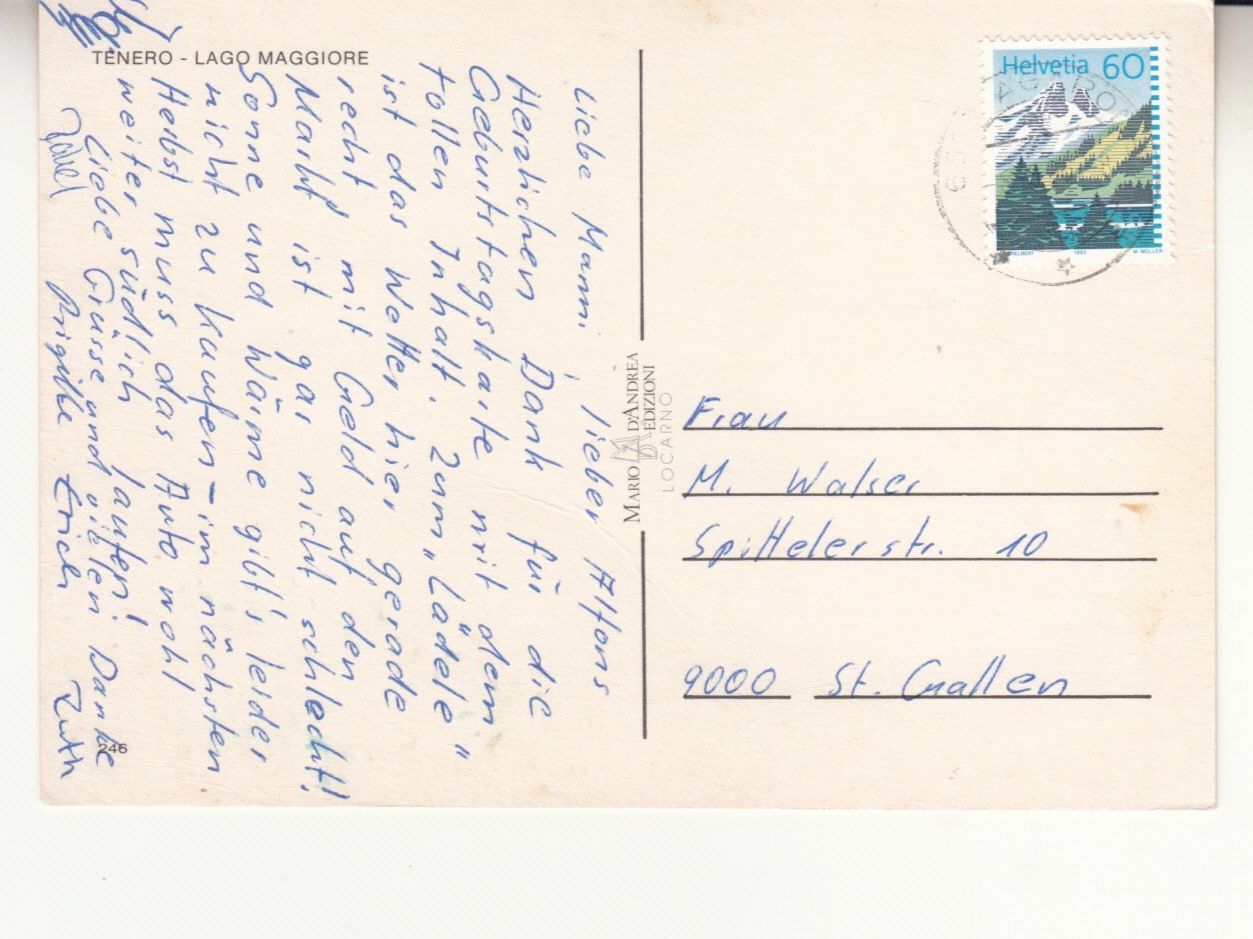 TENERO - LAGO MAGGIORE
Liebe Mammi lieber Alfons
Herzlichen Dank für die
Geburtstagskarte mit dem
tollen Inhalt. Zum „Lädele"
ist das Wetter hier gerade
recht mit Geld auf den
Markt ist gar nicht schlecht!
Sonne und Wärme gibt's leider
nicht zu kaufen - im nächsten
Herbst muss das Auto wohl
weiter südlich laufen!
Liebe Grüsse und vielen Danke
Brigitte Erich Ruth
246
MARIO D'ANDREA
EDIZIONI
LOCARNO
Helvetia 60
1993
M. MÜLLER
Frau
M. Walser
Spittelerstr. 10
9000 St. Gallen